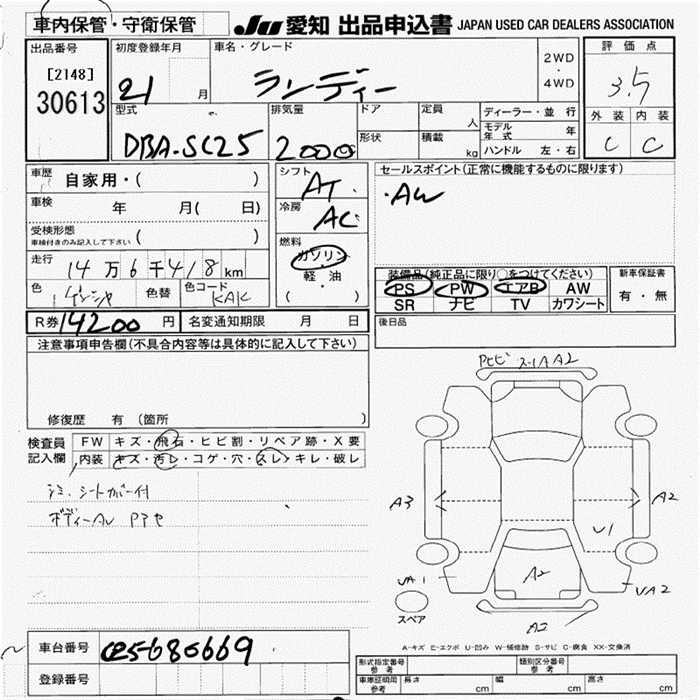 車内保管・守衛保管
JU 愛知 出品申込書 JAPAN USED CAR DEALERS ASSOCIATION
出品番号
[2148]
30613
初度登録年月
21 月
車名・グレード
ランディー
2WD
・
4WD
評価点
3.5
外装 内装
C C
型式
DBA-SC25
排気量
2000
ドア
形状
定員
人
積載
kg
ディーラー・並行
モデル年式 年
ハンドル 左・右
車歴 自家用・( )
車検 年 月( 日)
受検形態
車検付きのみ記入して下さい ( )
走行 14万6千418km
色 色替 色コード KAK
シフト
AT
冷房
AC
燃料
ガソリン
・
軽・油
( )
セールスポイント(正常に機能するものに限ります)
・AW
装備品(純正品に限り○をつけてください)
PS PW エアB AW
SR ナビ TV カワシート
新車保証書
有・無
後日品
R券 14200円 名変通知期限 月 日
注意事項申告欄(不具合内容等は具体的に記入して下さい)
修復歴 有(箇所 )
検査員記入欄
FW キズ・飛石・ヒビ割・リペア跡・X要
内装 キズ・汚レ・コゲ・穴・スレ・キレ・破レ
シートカバー付
A2
A3
A2
U1
A2
UA1
UA2
スペア
A2
A-キズ E-エクボ U-凹み W-補修跡 S-サビ C-腐食 XX-交換済
車台番号 C25-686669
登録番号
形式指定番号
参考
類別区分番号
参考
車庫証明用
参考
長さ cm 幅 cm 高さ cm